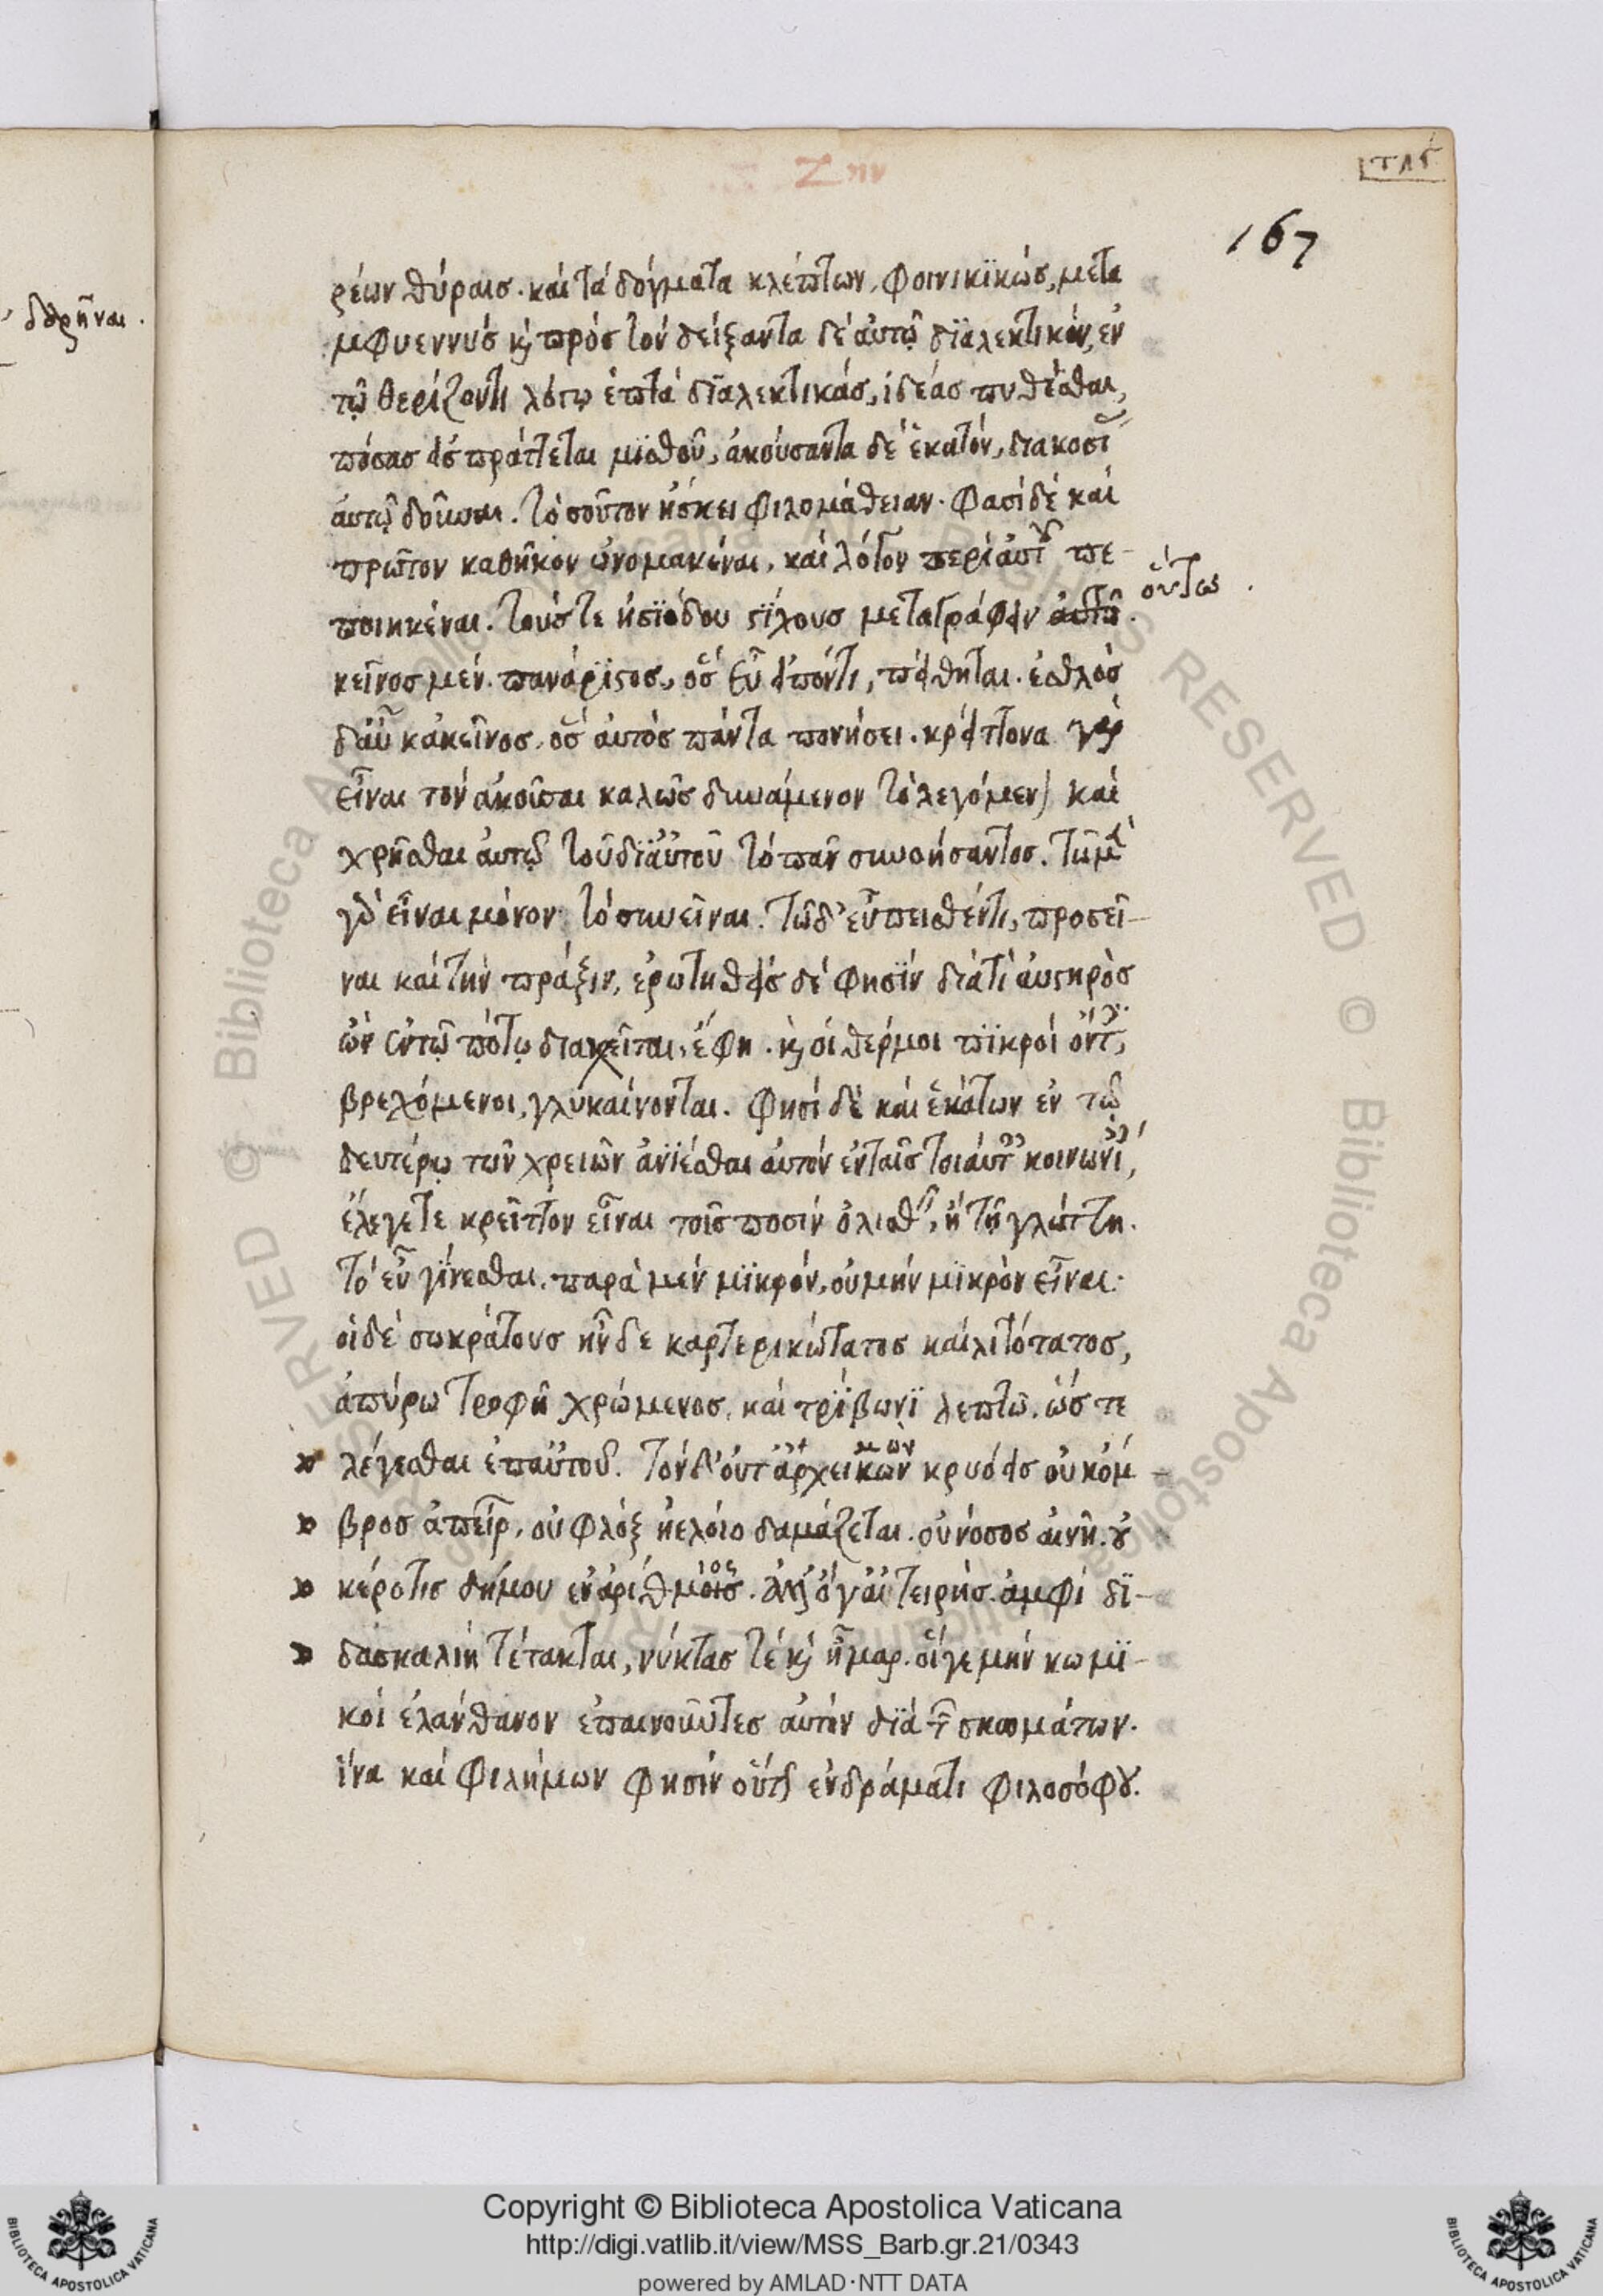 Ζην
167
εὑρῆναι.
ρέων θύραις. καὶ τὰ δόγματα κλέπτων, φοινικϊκῶς, μετα
μφυεννὺς κ̀ πρὸς τὸν δείξαντα δὲ αὐτῷ διαλεκτικὸν, ἐν
τῷ θερίζοντι λόγω ἑπτὰ διαλεκτικάς, ἰδέας πυθέσθαι,
πόσας εἰσπράττεται μϊσθοῦ, ἀκούσαντα δὲ ἑκατὸν, διακοσί
αὐτῷ δοῦναι. τὸσοῦτον ἤσκει φιλομάθειαν. φασὶ δὲ καὶ
πρῶτον καθῆκον ὠνομακέναι, καὶ λόγον περὶ αὐτοῦ πε-
ποιηκέναι. τούς τε ἡσϊόδου στίχους μεταγράφειν αὐτῶ. οὕτως.
κεῖνος μὲν πανάριστος, ὃς εὖ εἰπόντι, πείθηται. ἐσθλὸς
δ'αὖ κἀκεῖνος, ὃς αὐτὸς πάντα πονήσει. κρείττονα γὰρ
εἶναι τὸν ἀκοῦσαι καλῶς δυνάμενον τὸ λεγόμενον καὶ
χρῆσθαι αὐτῷ τοῦ διαὐτοῦ τὸ πᾶν συνοήσαντος. τῶ μὲν
γὰρ εἶναι μόνον τὸ συνεῖναι. τῶ δ' εὖ πεισθέντι, προσεῖ-
ναι καὶ τὴν πρᾶξιν, ἐρωτηθεὶς δὲ φησὶν διατί αὐστηρὸς
ὢν ἐν τῷ πότῳ διαχεῖται, ἔφη. κ̀ οἱ θέρμοι πϊκροὶ ὄντες,
βρεχόμενοι, γλυκαίνονται. φησὶ δὲ καὶ ἑκάτων ἐν τῷ
δευτέρῳ τῶν χρειῶν ἀνίεσθαι αὐτὸν ἐν ταῖς τοιαύταις κοινωνίαις,
ἔλεγε τε κρεῖττον εἶναι τοῖς ποσὶν ὀλισθεῖν, ἢ τῇ γλώττη.
τὸ εὖ γίνεσθαι, παρὰ μὲν μϊκρὸν, οὐ μὴν μϊκρὸν εἶναι.
οἱ δὲ σωκράτους ἦν δε καρτερικώτατος καὶ λιτότατος,
ἀπύρω τροφῇ χρώμενος, καὶ τρίβωνϊ λεπτῶ. ὥστε
λέγεσθαι ἐπαὐτοῦ. τὸν δ'οὐτ ἀρχειμὼν κρυόεις οὐκ ὄμ-
βρος ἀπείρ, οὐ φλὸξ ἠελόιο δαμάζεται. οὐ νόσος αἰνὴ. οὐ
κέροτις δήμου ἐναρίθμιος. ἀλλ' ὅγ' ἀτειρὴς. ἀμφὶ δϊ-
δασκαλίη τέτακται, νύκτας τὲ κ̀ ἦμαρ. οἵ γε μὴν κωμϊ-
κοὶ ἐλάνθανον ἐπαινοῦντες αὐτὸν διὰ τῶν σκωμάτων.
ἵνα καὶ φιλήμων φησὶν οὕτω ἐν δράματι φιλοσόφου.
© Biblioteca Apostolica Vaticana ALL RIGHTS RESERVED © Biblioteca Apostolica Vaticana ALL RIGHTS RESERVED
Copyright © Biblioteca Apostolica Vaticana
http://digi.vatlib.it/view/MSS_Barb.gr.21/0343
powered by AMLAD·NTT DATA
BIBLIOTECA APOSTOLICA VATICANA
BIBLIOTECA APOSTOLICA VATICANA